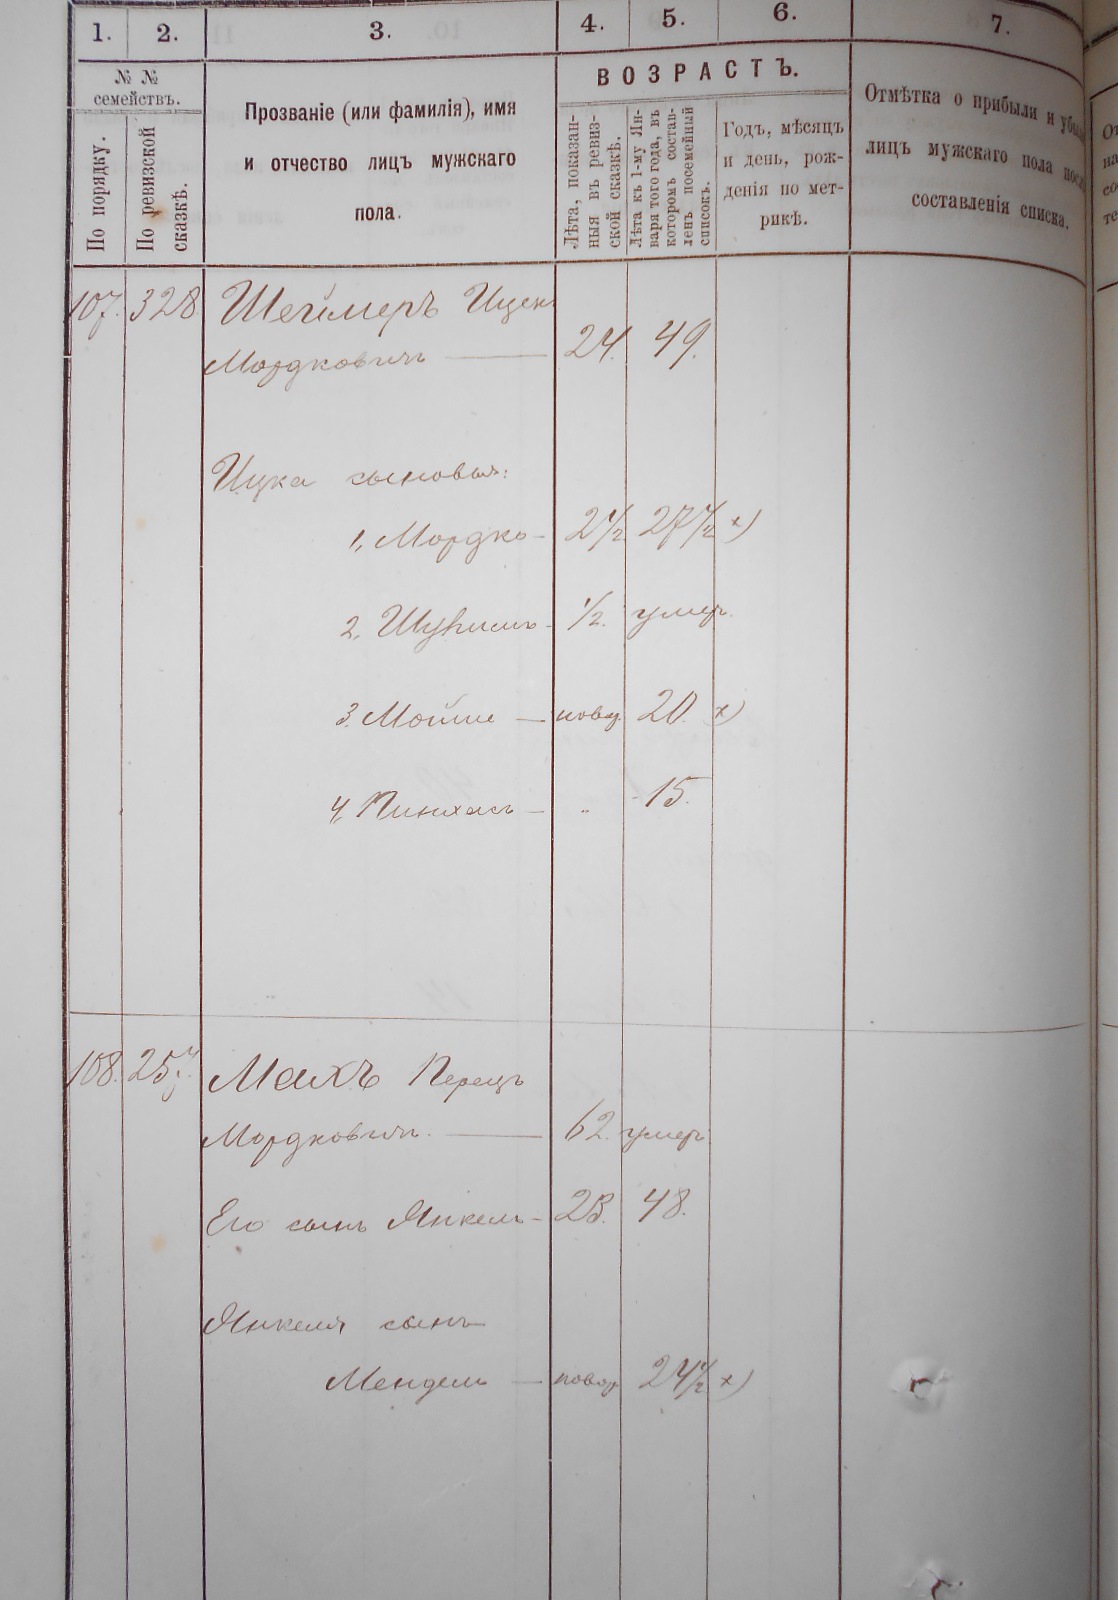 1. 2. 3. 4. 5. 6. 7.
№ №
семействъ.
По порядку.
По ревизской
сказкѣ.
Прозваніе (или фамилія), имя
и отчество лицъ мужскаго
пола.
ВОЗРАСТЪ.
Лѣта, показан-
ныя въ ревиз-
ской сказкѣ.
Лѣта къ 1-му Ян-
варя того года, въ
которомъ состав-
ленъ посемейный
списокъ.
Годъ, мѣсяцъ
и день, рож-
денія по мет-
рикѣ.
Отмѣтка о прибыли и убы
лицъ мужскаго пола пос
составленія списка.
107. 328 Шеймеръ Ицек
Мордковичъ — 24. 49.
Ицка сыновья:
1, Мордко - 2½ 27½ х)
2, - ½. умер.
3. Мойше — новор 20. х)
4, Пинхасъ - „ 15.
108. 257. Махъ Перецъ
Мордковичъ. — 62. умеръ
Его сынъ Янкель - 23. 48.
Янкеля сынъ
Мендель — новор 24½ х)